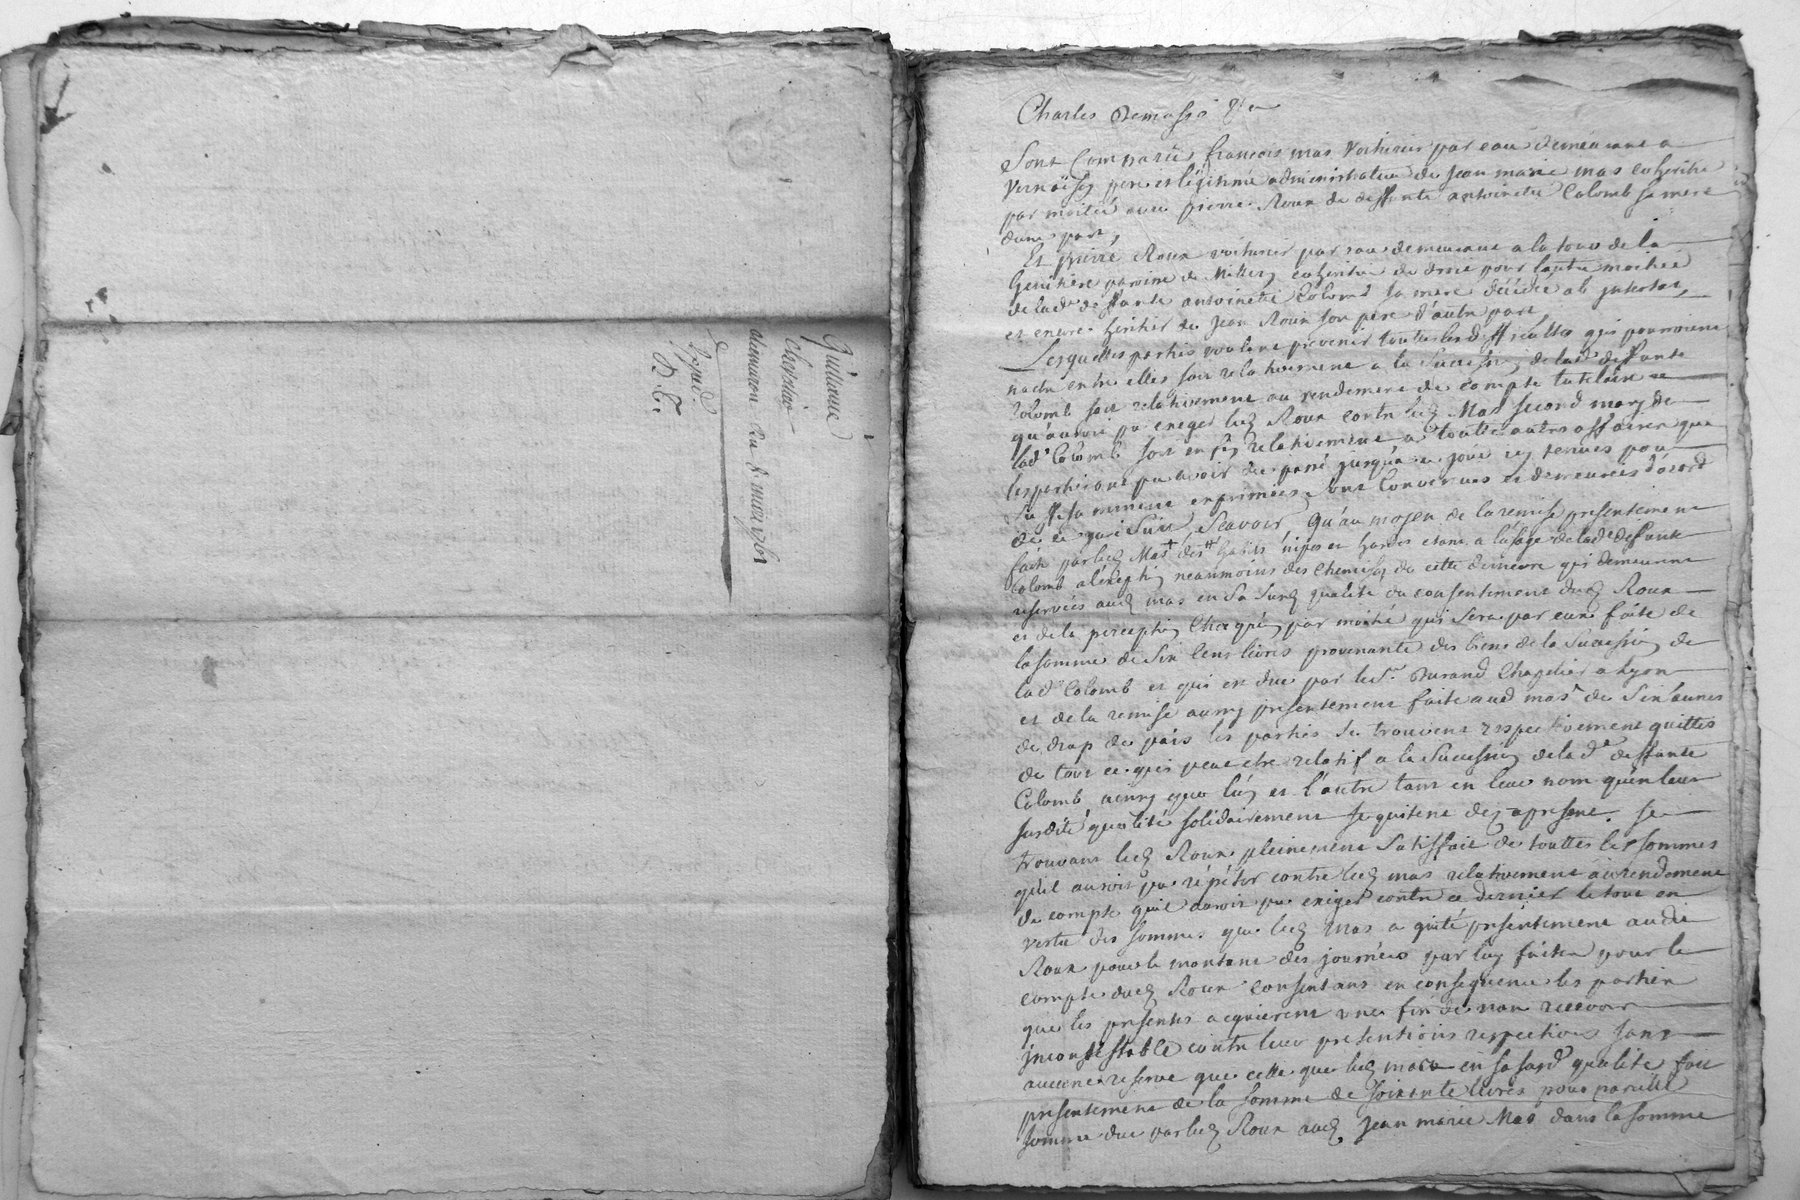 Quittance
Chapelier
du 8 mars 1761
Expedⁱᵉ
Charles Demasso &a
Sont Comparus francois mas voiturier par eau demeurant a
Vernaison pere et légitimé administrateur de Jean marie mas coheritier
par moitié avec pierre Roux de deffunte antoinette Colomb sa mere
d'une part,
Et pierre Roux voiturier par eau demeurant a la tour de la
paroisse de Millery coheritier de droit pour l'autre moitiée
de lad.e deffunte antoinette Colomb sa mere décédée ab intestat,
et encore heritier de Jean Roux son pere d'autre part
Lesquelles parties voulant prevenir toutes les difficultés qui pourroient
naitre entre elles soit relativement a la Succession de lad.e deffunte
Colomb soit relativement au rendement de compte tutelaire
qu'auroit pu exeger led. Roux contre led. Mas second mary de
lad.e Colomb soit enfin relativement a toutte autres affaires que
les parties ont pu avoir du passé jusqu'a ce jour icy tenues pour
suffisamment exprimées sont Convenues et demeurées d'acord
de ce qui Suit, Scavoir, Qu'au moyen de la remise presentement
faite par led. Mas des habits nipes et hardes etant a l'usage de lad.e deffunte
Colomb a l'exeption neanmoins des chemises de cette derniere qui demeurent
reservées aud. mas en sa susd. qualité du consentement dud. Roux
et de la perception par moitié qui sera par eux faite de
la somme de Six Cens livres provenante des biens de la Succession de
lad.e Colomb et qui est due par le Sr. Durand Chapelier a Lyon
et de la remise aussy presentement faite aud mas de Six aunes
de drap de païs les parties se trouvent respectivement quittes
de tout ce qui peut etre relatif a la Succession de lad.e deffunte
Colomb ainsy que l'un et l'autre tant en leur nom qu'en leur
susdite qualité solidairement se quitent dez apresent. se
trouvant led. Roux pleinement Satisfait de touttes les sommes
qu'il auroit pu répéter contre led. mas relativement au rendement
de compte qu'il auroit pu exiger contre ce dernier le tout en
vertu des sommes que led. mas a quité presentement audit
Roux pour le montant des journées par luy faites pour le
compte dud. Roux Consentans en consequence les parties
que les presentes acquierent une fin de non recevoir
incontestable contre leur pretentions respectives sans
aucune reserve que celle que led. mas en sa susd. qualité fait
presentement de la somme de soixante livres pour pareille
somme due par led. Roux aud. Jean marie Mas dans la somme